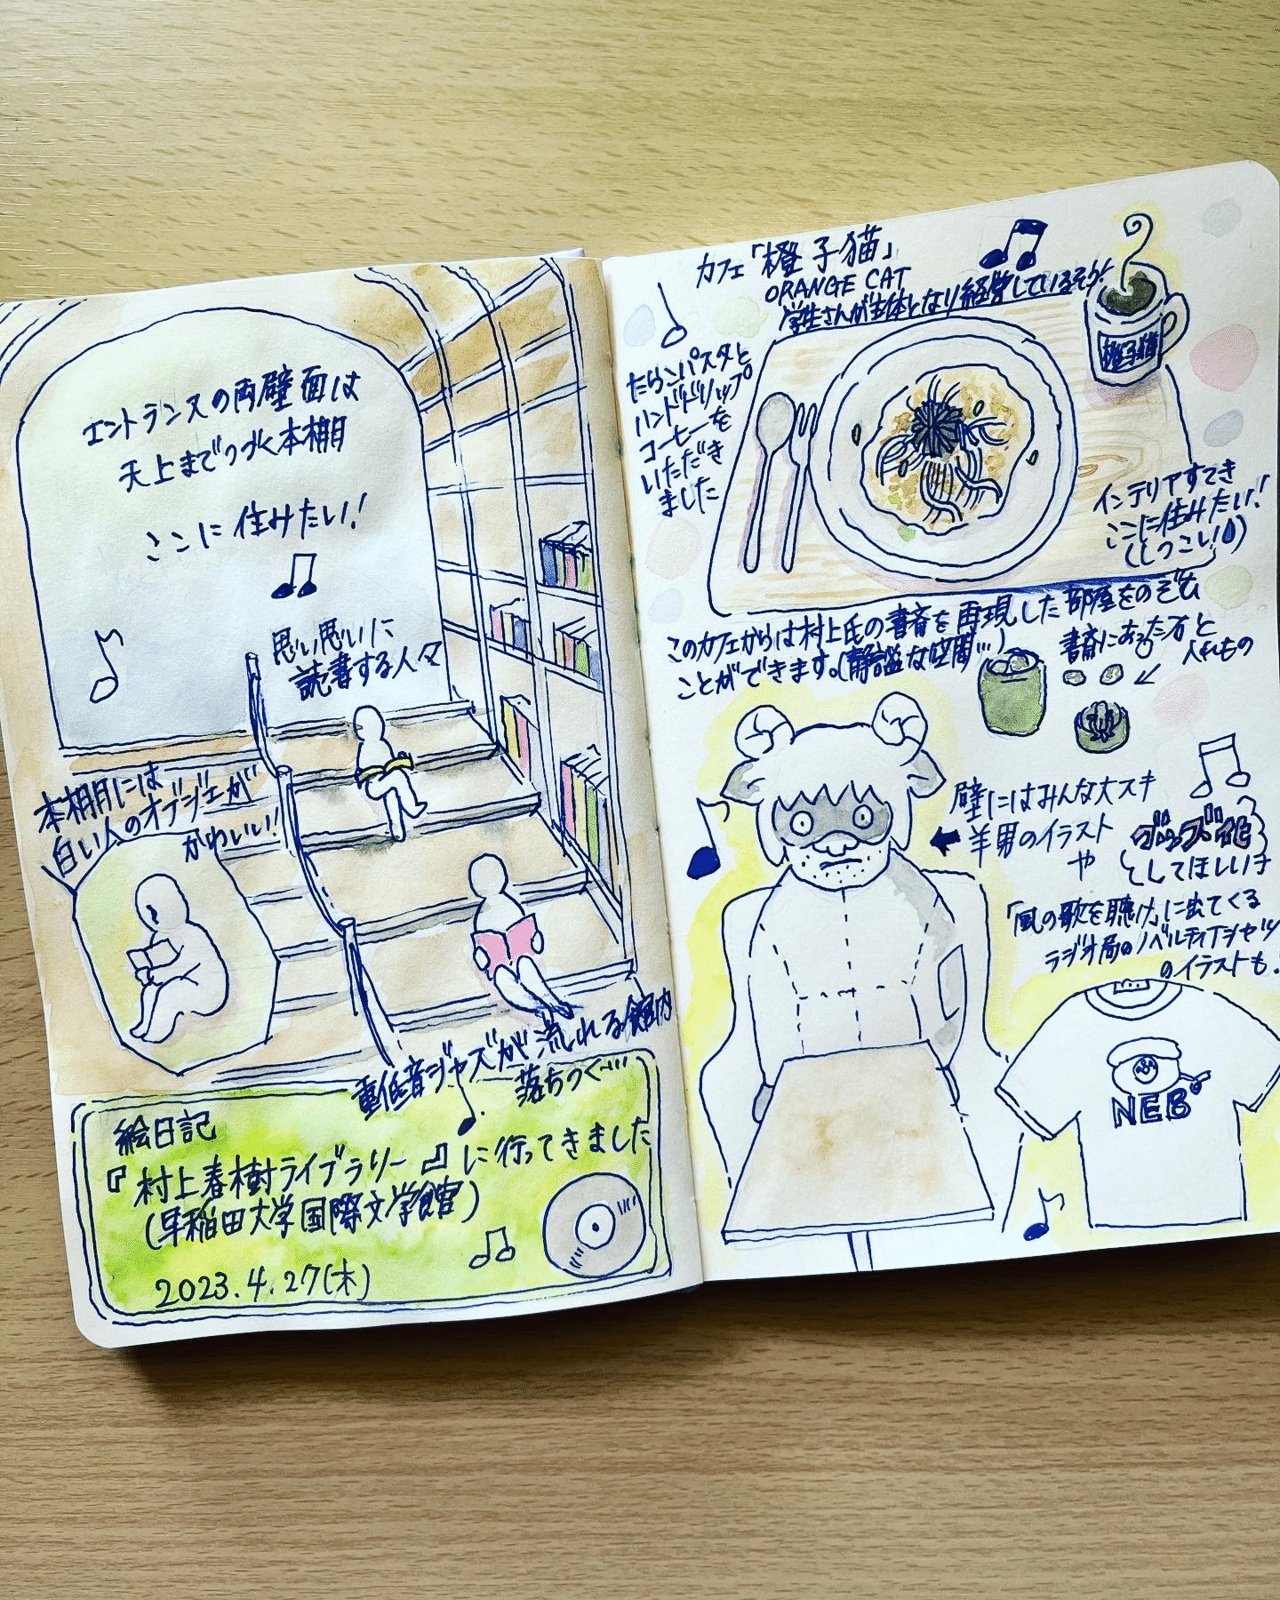 エントランスの両壁面は
天上までつづく本棚
ここに住みたい!
思い思いに
読書する人々
本棚には
白い人のオブジェが
かわいい!
重低音ジャズが流れる館内
落ちつく…
絵日記
『村上春樹ライブラリー』に行ってきました
(早稲田大学国際文学館)
2023.4.27(木)
カフェ「橙子猫」
ORANGE CAT
学生さんが主体となり経営しているそう!
橙子猫
たらこパスタと
ハンドドリップ
コーヒーを
いただき
ました
インテリアすてき
ここに住みたい!
(しつこい!)
このカフェからは村上氏の書斎を再現した部屋をのぞむ
ことができます。(静謐な空間…)
書斎にあった石と
入れもの
壁にはみんな大スキ
羊男のイラスト
や
グッズ化
してほしい!
「風の歌を聴け」に出てくる
ラジオ局のノベルティTシャツ
のイラストも!
NEB